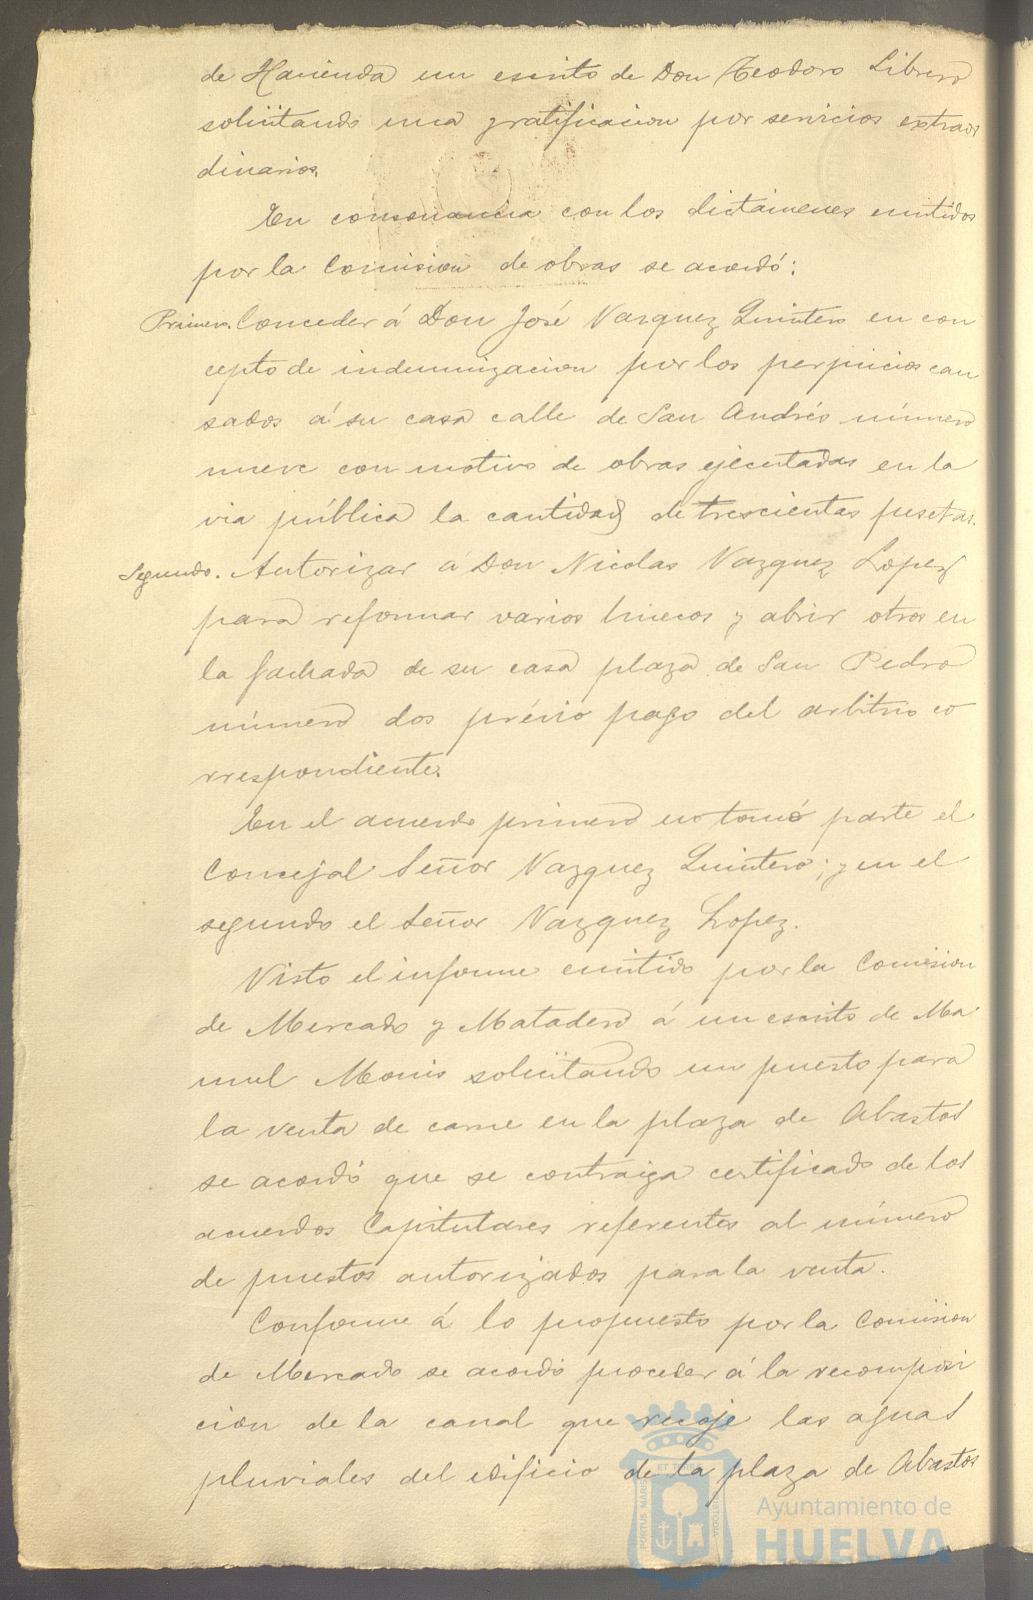 de Hacienda un escrito de Don Teodoro Librero
solicitando una gratificacion por servicios extraor
dinarios.
En consonancia con los dictámenes emitidos
por la Comision de obras se acordó:
Primero. Conceder á Don José Vazquez Quintero en con
cepto de indemnizacion por los perjuicios cau
sados á su casa calle de San Andrés número
nueve con motivo de obras ejecutadas en la
via pública la cantidad de trescientas pesetas.
Segundo. Autorizar á Don Nicolas Vazquez Lopez
para reformar varios huecos y abrir otros en
la fachada de su casa plaza de San Pedro
número dos prévio pago del arbitrio co
rrespondiente.
En el acuerdo primero no tomó parte el
Concejal Señor Vazquez Quintero; y en el
segundo el Señor Vazquez Lopez.
Visto el informe emitido por la Comision
de Mercado y Matadero á un escrito de Ma
nuel Monis solicitando un puesto para
la venta de carne en la plaza de Abastos
se acordó que se contraiga certificado de los
acuerdos Capitulares referentes al número
de puestos autorizados para la venta.
Conforme á lo propuesto por la Comision
de Mercado se acordó proceder á la recomposi
cion de la canal que recoje las aguas
pluviales del edificio de la plaza de Abastos
PORTUS MARIS ET TERRAE CUSTODIA
Ayuntamiento de
HUELVA